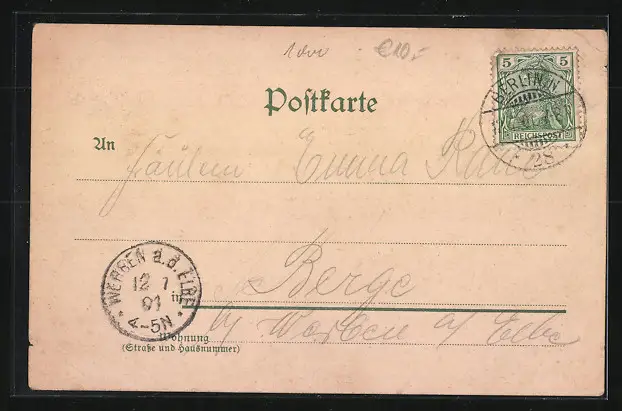 €10,-
5 5
BERLIN N
REICHSPOST
28
Postkarte
An
Fräulein Emma
Berge
WERBEN a.d. ELBE
12 1
01
4-5N
in
b/ Werben a/ Elbe
Wohnung
(Straße und Hausnummer)